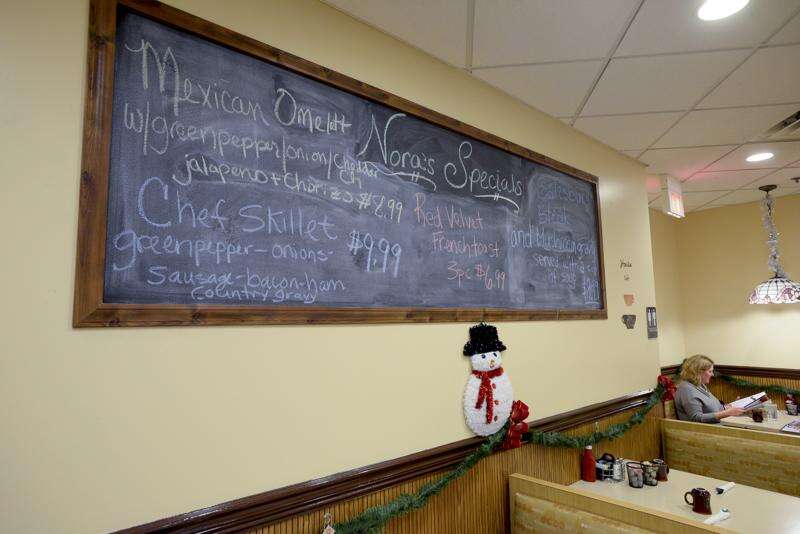 Mexican Omelett
w/greenpepper/onion/Cheddar
ch
Jalapeno + Chorizo $8.99
Chef Skillet
greenpepper-onions- $9.99
Sausage-bacon-ham
Country gravy
Nora's Specials
Red Velvet
Frenchtoast
3pc $6.99
Salisbury
Steak
and Mushroom gravy
served with